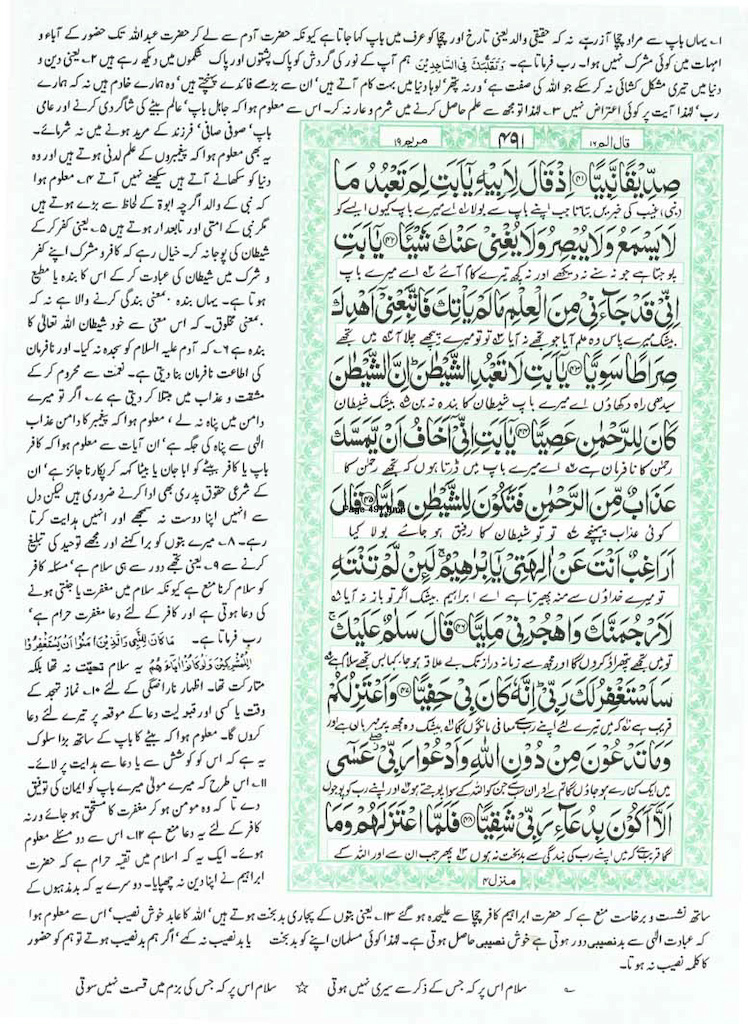 ۱۔ یہاں باپ سے مراد چچا آزر ہے، نہ کہ حقیقی والد یعنی تارخ اور چچا کو عرف میں باپ کہا جاتا ہے کیونکہ حضرت آدم سے لے کر حضرت عبداللہ تک حضور کے آباء و
امہات میں کوئی مشرک نہیں ہوا۔ رب فرماتا ہے۔ وَتَقَلُّبَكَ فِی السَّاجِدِیْنَ ہم آپ کے نور کی گردش کو پاک پشتوں اور پاک شکموں میں دیکھ رہے ہیں ۲۔ یعنی دین و
دنیا میں تیری مشکل کشائی نہ کر سکے جو اللہ کی صفت ہے ورنہ پتھر لوہا دنیا میں بہت کام آتے ہیں ان سے بڑے فائدے پہنچتے ہیں وہ ہمارے خادم ہیں نہ کہ ہمارے
رب لہٰذا آیت پر کوئی اعتراض نہیں ۳۔ لہٰذا تو مجھ سے علم حاصل کرنے میں شرم و عار نہ کر۔ اس سے معلوم ہوا کہ جاہل باپ عالم بیٹے کی شاگردی کرنے اور عامی
قال الم ۱۶
۴۹۱
مریم ۱۹
صِدِّیْقًا نَّبِیًّا ﴿۴۱﴾ اِذْ قَالَ لِاَبِیْهِ یٰۤاَبَتِ لِمَ تَعْبُدُ مَا
بتاتا جب اپنے باپ سے بولا ۱ اے میرے باپ کیوں ایسے کو
لَا یَسْمَعُ وَلَا یُبْصِرُ وَلَا یُغْنِیْ عَنْكَ شَیْئًا ﴿۴۲﴾ یٰۤاَبَتِ
پوجتا ہے جو نہ سنے نہ دیکھے اور نہ کچھ تیرے کام آئے ۲ اے میرے باپ
اِنِّیْ قَدْ جَآءَنِیْ مِنَ الْعِلْمِ مَا لَمْ یَاْتِكَ فَاتَّبِعْنِیْۤ اَهْدِكَ
بیشک میرے پاس وہ علم آیا جو تجھے نہ آیا تو تو میرے پیچھے چلا آ میں تجھے
صِرَاطًا سَوِیًّا ﴿۴۳﴾ یٰۤاَبَتِ لَا تَعْبُدِ الشَّیْطٰنَ اِنَّ الشَّیْطٰنَ
سیدھی راہ دکھاؤں اے میرے باپ شیطان کا بندہ نہ بن بیشک شیطان
كَانَ لِلرَّحْمٰنِ عَصِیًّا ﴿۴۴﴾ یٰۤاَبَتِ اِنِّیْۤ اَخَافُ اَنْ یَّمَسَّكَ
رحمٰن کا نافرمان ہے اے میرے باپ میں ڈرتا ہوں کہ تجھے رحمٰن کا
عَذَابٌ مِّنَ الرَّحْمٰنِ فَتَكُوْنَ لِلشَّیْطٰنِ وَلِیًّا ﴿۴۵﴾ قَالَ
Page 491.bmp
کوئی عذاب پہنچے تو تو شیطان کا رفیق ہو جائے بولا کیا
اَرَاغِبٌ اَنْتَ عَنْ اٰلِهَتِیْ یٰۤاِبْرٰهِیْمُ لَئِنْ لَّمْ تَنْتَهِ
تو میرے خداؤں سے منہ پھیرتا ہے اے ابراہیم بیشک اگر تو باز نہ آیا
لَاَرْجُمَنَّكَ وَاهْجُرْنِیْ مَلِیًّا ﴿۴۶﴾ قَالَ سَلٰمٌ عَلَیْكَ
تو میں تجھے پتھراؤ کروں گا اور مجھ سے زمانہ دراز تک بے علاقہ ہو جا کہا بس تجھے سلام ہے
سَاَسْتَغْفِرُ لَكَ رَبِّیْ اِنَّهٗ كَانَ بِیْ حَفِیًّا ﴿۴۷﴾ وَاَعْتَزِلُكُمْ
قریب ہے کہ میں تیرے لئے اپنے رب سے معافی مانگوں گا بیشک وہ مجھ پر مہربان ہے اور
وَمَا تَدْعُوْنَ مِنْ دُوْنِ اللّٰهِ وَاَدْعُوْا رَبِّیْ عَسٰۤی
میں ایک کنارے ہو جاؤں گا تم سے اور ان سے جن کو اللہ کے سوا پوجتے ہو اور اپنے رب کو پوجوں
اَلَّاۤ اَكُوْنَ بِدُعَآءِ رَبِّیْ شَقِیًّا ﴿۴۸﴾ فَلَمَّا اعْتَزَلَهُمْ وَمَا
گا قریب ہے کہ میں اپنے رب کی بندگی سے بدبخت نہ ہوں پھر جب ان سے اور اللہ کے
منزل ۴
باپ صوفی صافی فرزند کے مرید ہونے میں نہ شرمائے۔
یہ بھی معلوم ہوا کہ پیغمبروں کے علم لدنی ہوتے ہیں اور وہ
دنیا کو سکھانے آتے ہیں سیکھنے نہیں آتے ۴۔ معلوم ہوا
کہ نبی کے والد اگرچہ ابوۃ کے لحاظ سے بڑے ہوتے ہیں
مگر نبی کے امتی اور تابعدار ہوتے ہیں ۵۔ یعنی کفر کر کے
شیطان کی پوجا نہ کر۔ خیال رہے کہ کافر و مشرک اپنے کفر
و شرک میں شیطان کی عبادت کر کے اس کا بندہ یا مطیع
ہوتا ہے۔ یہاں بندہ بمعنی بندگی کرنے والا ہے نہ کہ
بمعنی مخلوق۔ کہ اس معنی سے خود شیطان اللہ تعالیٰ کا
بندہ ہے ۶۔ کہ آدم علیہ السلام کو سجدہ نہ کیا۔ اور نافرمان
کی اطاعت نافرمان بنا دیتی ہے۔ نعمت سے محروم کر کے
مشقت و عذاب میں مبتلا کر دیتی ہے ۷۔ اگر تو میرے
دامن میں پناہ نہ لے، معلوم ہوا کہ پیغمبر کا دامن عذاب
الٰہی سے پناہ کی جگہ ہے ان آیات سے معلوم ہوا کہ کافر
باپ یا کافر بیٹے کو ابا جان یا بیٹا کہہ کر پکارنا جائز ہے ان
کے شرعی حقوق پدری بھی ادا کرنے ضروری ہیں لیکن دل
سے انہیں اپنا دوست نہ سمجھے اور انہیں ہدایت کرتا
رہے۔ ۸۔ میرے بتوں کو برا کہنے اور مجھے توحید کی تبلیغ
کرنے سے ۹۔ یعنی تجھے دور سے ہی سلام ہے مسئلہ کافر
کو سلام کرنا منع ہے کیونکہ سلام میں مغفرت یا جنتی ہونے
کی دعا ہوتی ہے اور کافر کے لئے دعا مغفرت حرام ہے
رب فرماتا ہے۔ مَا كَانَ لِلنَّبِیِّ وَالَّذِیْنَ اٰمَنُوْا اَنْ یَّسْتَغْفِرُوْا
لِلْمُشْرِكِیْنَ یہ سلام تحیت نہ تھا بلکہ
متارکت تھا۔ اظہار ناراضگی کے لئے ۱۰۔ نماز تہجد کے
وقت یا کسی اور قبولیت دعا کے موقعہ پر تیرے لئے دعا
کروں گا۔ معلوم ہوا کہ بیٹے کا باپ کے ساتھ بڑا سلوک
یہ ہے کہ اس کو کوشش سے یا دعا سے ہدایت پر لائے۔
۱۱۔ اس طرح کہ میرے مولیٰ میرے باپ کو ایمان کی توفیق
دے تا کہ وہ مومن ہو کر مغفرت کا مستحق ہو جائے ورنہ
کافر کے لئے یہ دعا منع ہے ۱۲۔ اس سے دو مسئلے معلوم
ہوئے۔ ایک یہ کہ اسلام میں تقیہ حرام ہے کہ حضرت
ابراہیم نے اپنا دین نہ چھپایا۔ دوسرے یہ کہ بدمذہبوں کے
ساتھ نشست و برخاست منع ہے کہ حضرت ابراہیم کافر چچا سے علیحدہ ہو گئے ۱۳۔ یعنی بتوں کے پجاری بدبخت ہوتے ہیں اللہ کا عابد خوش نصیب اس سے معلوم ہوا
کہ عبادت الٰہی سے بدنصیبی دور ہوتی ہے خوش نصیبی حاصل ہوتی ہے۔ لہٰذا کوئی مسلمان اپنے کو بدبخت یا بدنصیب نہ کہے اگر ہم بدنصیب ہوتے تو ہم کو حضور
کا کلمہ نصیب نہ ہوتا۔
سلام اس پر کہ جس کے ذکر سے سیری نہیں ہوتی ☆ سلام اس پر کہ جس کی بزم میں قسمت نہیں سوتی